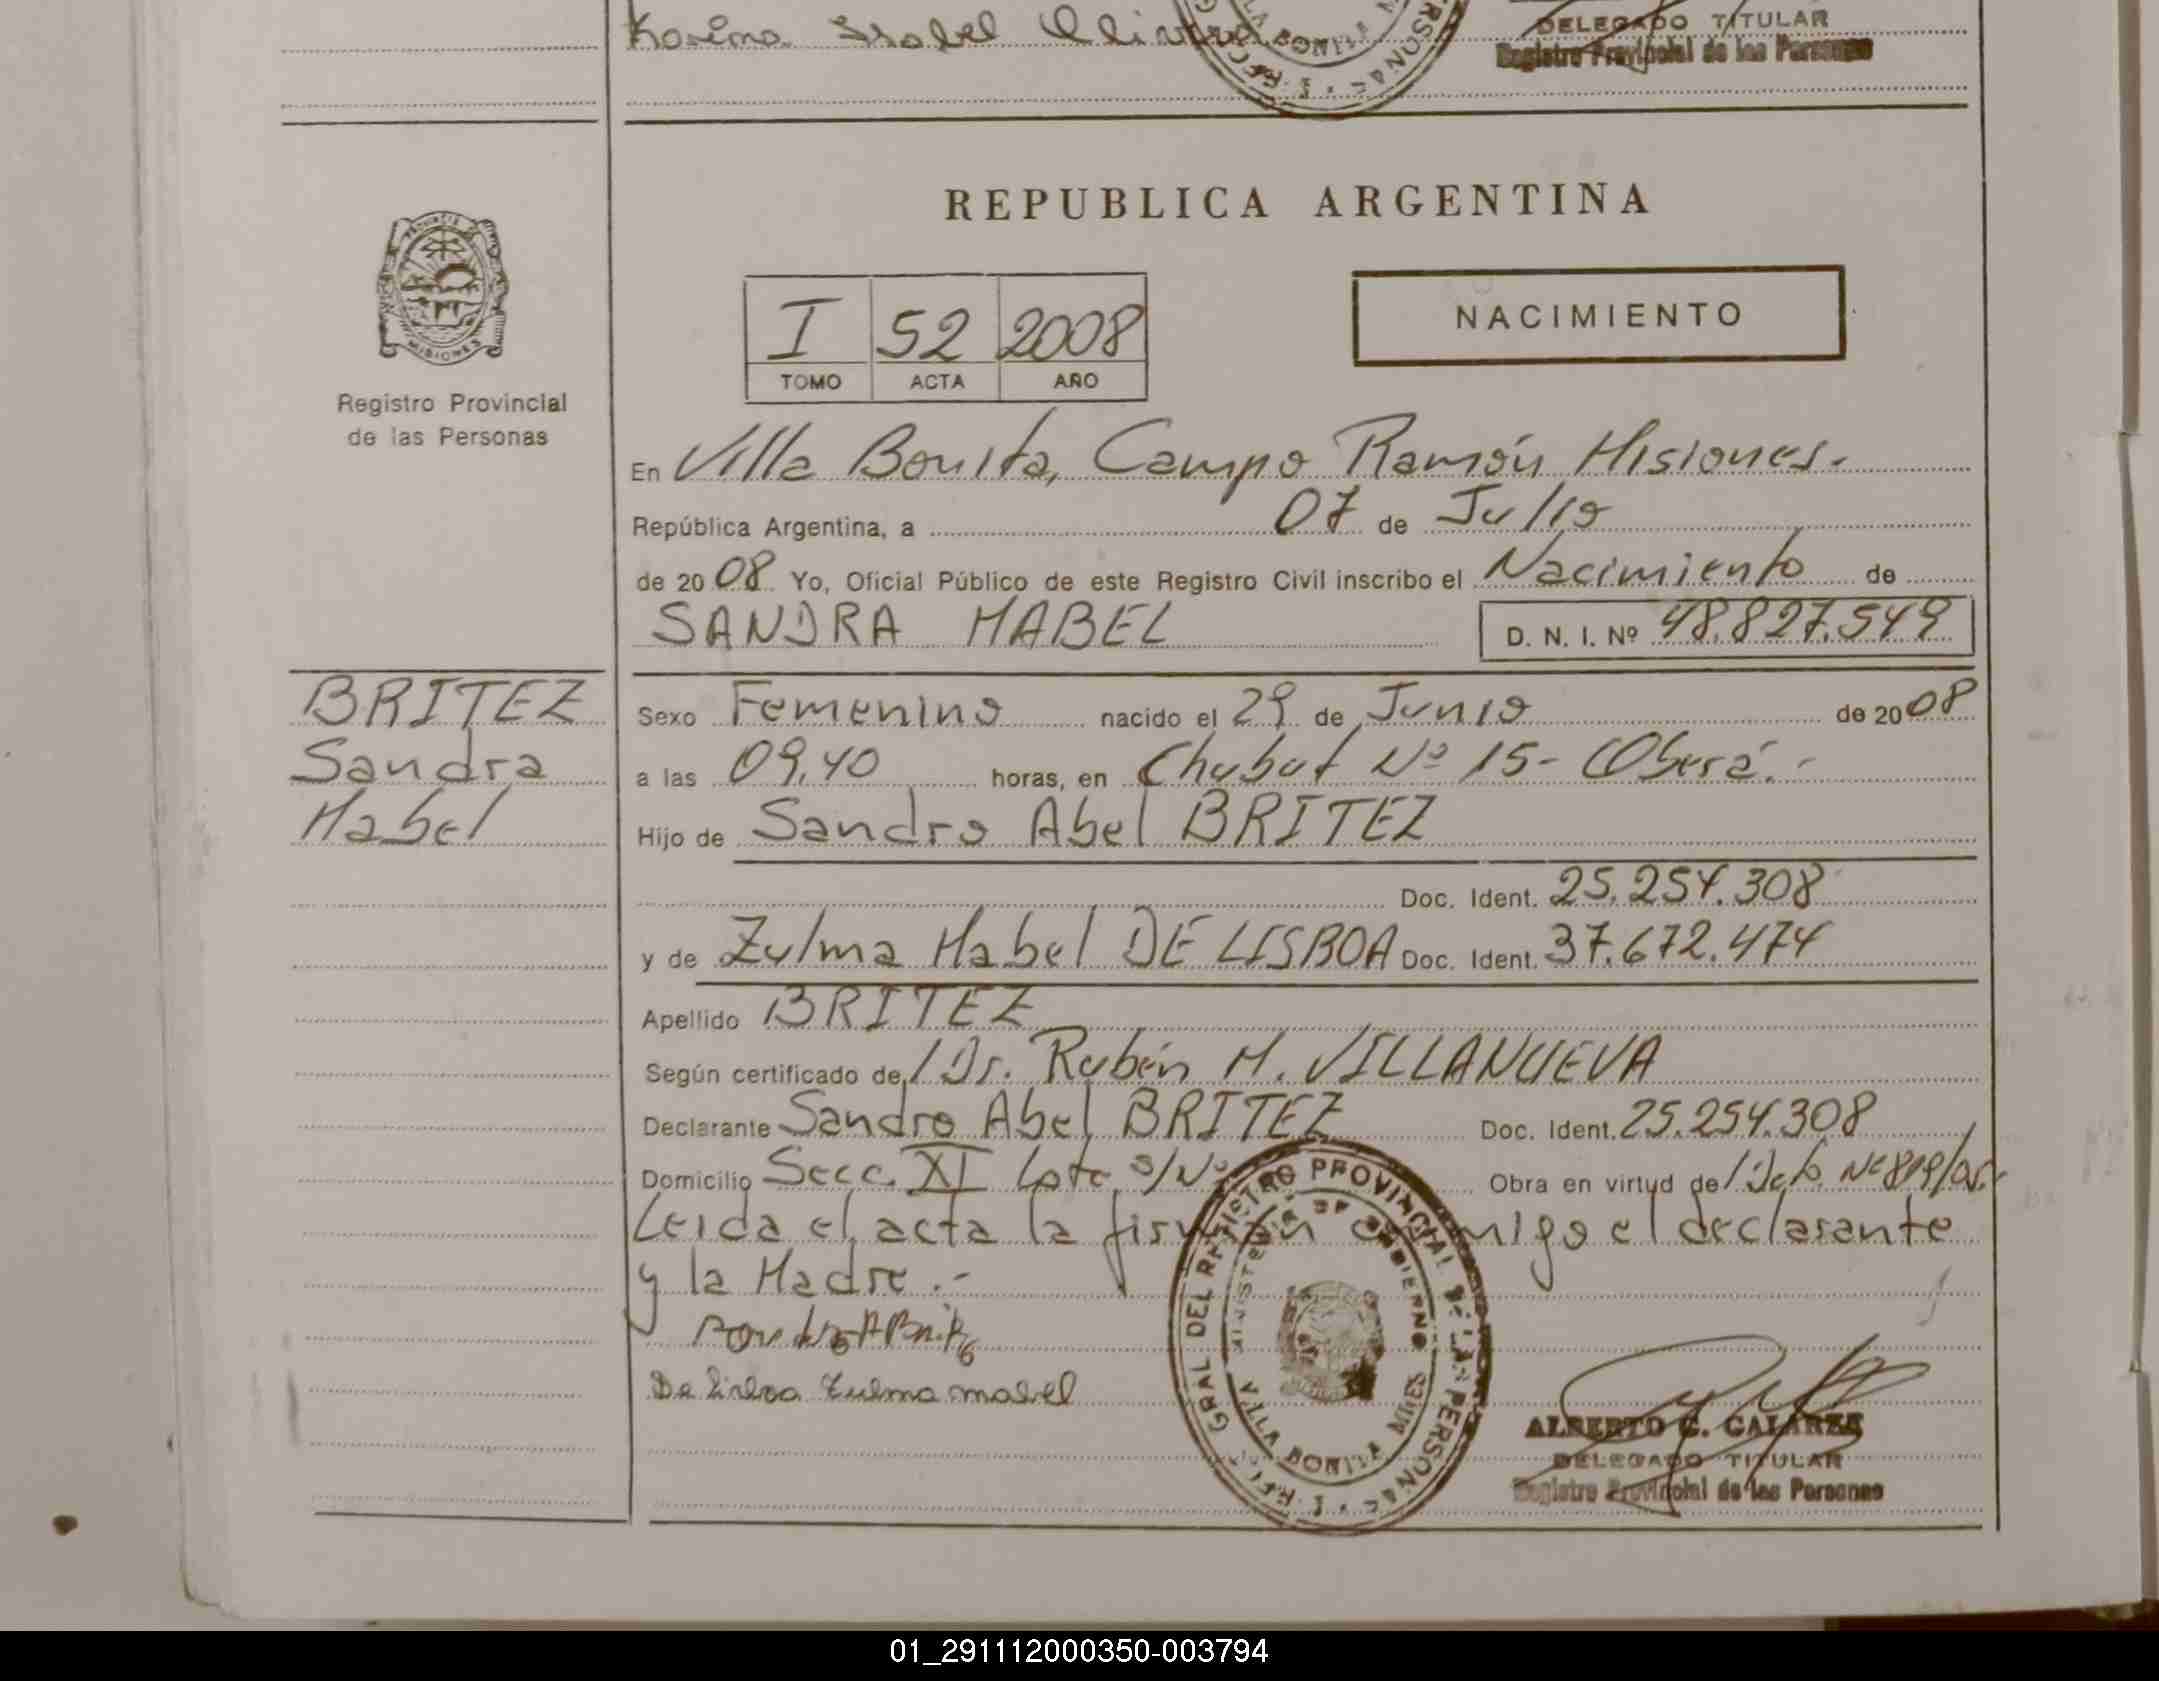 Karina Isabel Olivera
DELEGADO TITULAR
Registro Provincial de las Personas
REPUBLICA ARGENTINA
PROVINCIA DE
MISIONES
I 52 2008
TOMO ACTA AÑO
NACIMIENTO
Registro Provincial
de las Personas
En Villa Bonita, Campo Ramón Misiones.-
República Argentina, a 07 de Julio
de 2008 Yo, Oficial Público de este Registro Civil inscribo el Nacimiento de
SANDRA MABEL D. N. I. Nº 48.827.549
BRITEZ
Sandra
Mabel
Sexo Femenino nacido el 29 de Junio de 2008
a las 09,40 horas, en Chubut Nº 15- Oberá.-
Hijo de Sandro Abel BRITEZ
Doc. Ident. 25.254.308
y de Zulma Mabel DE LISBOA Doc. Ident. 37.672.474
Apellido BRITEZ
Según certificado de/ Dr. Rubén M. VILLANUEVA
Declarante Sandro Abel BRITEZ Doc. Ident. 25.254.308
Domicilio Secc. XI Lote s/Nº Obra en virtud de/ Dcto. Nº 819/05.-
Leida el acta la firman conmigo el declarante
y la Madre.-
De Lisboa Zulma mabel
GRAL DEL REGISTRO PROVINCIAL DE LAS PERSONAS
MINISTERIO DE GOBIERNO
VILLA BONITA MNES
ALBERTO G. GALARZA
DELEGADO TITULAR
Registro Provincial de las Personas
01_291112000350-003794